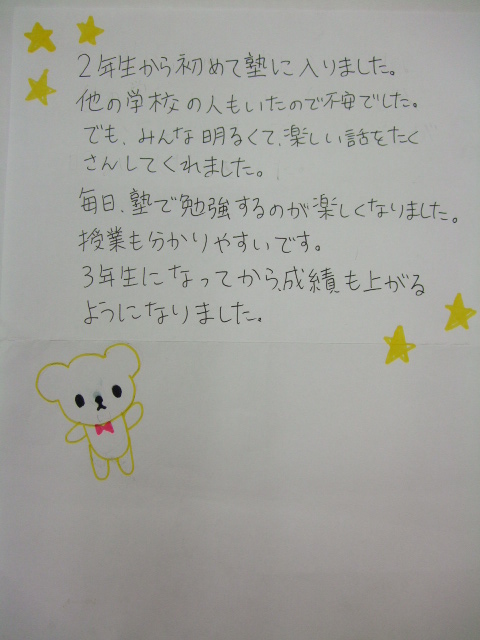 2年生から初めて塾に入りました。
他の学校の人もいたので不安でした。
でも、みんな明るくて、楽しい話をたく
さんしてくれました。
毎日、塾で勉強するのが楽しくなりました。
授業も分かりやすいです。
3年生になってから、成績も上がる
ようになりました。